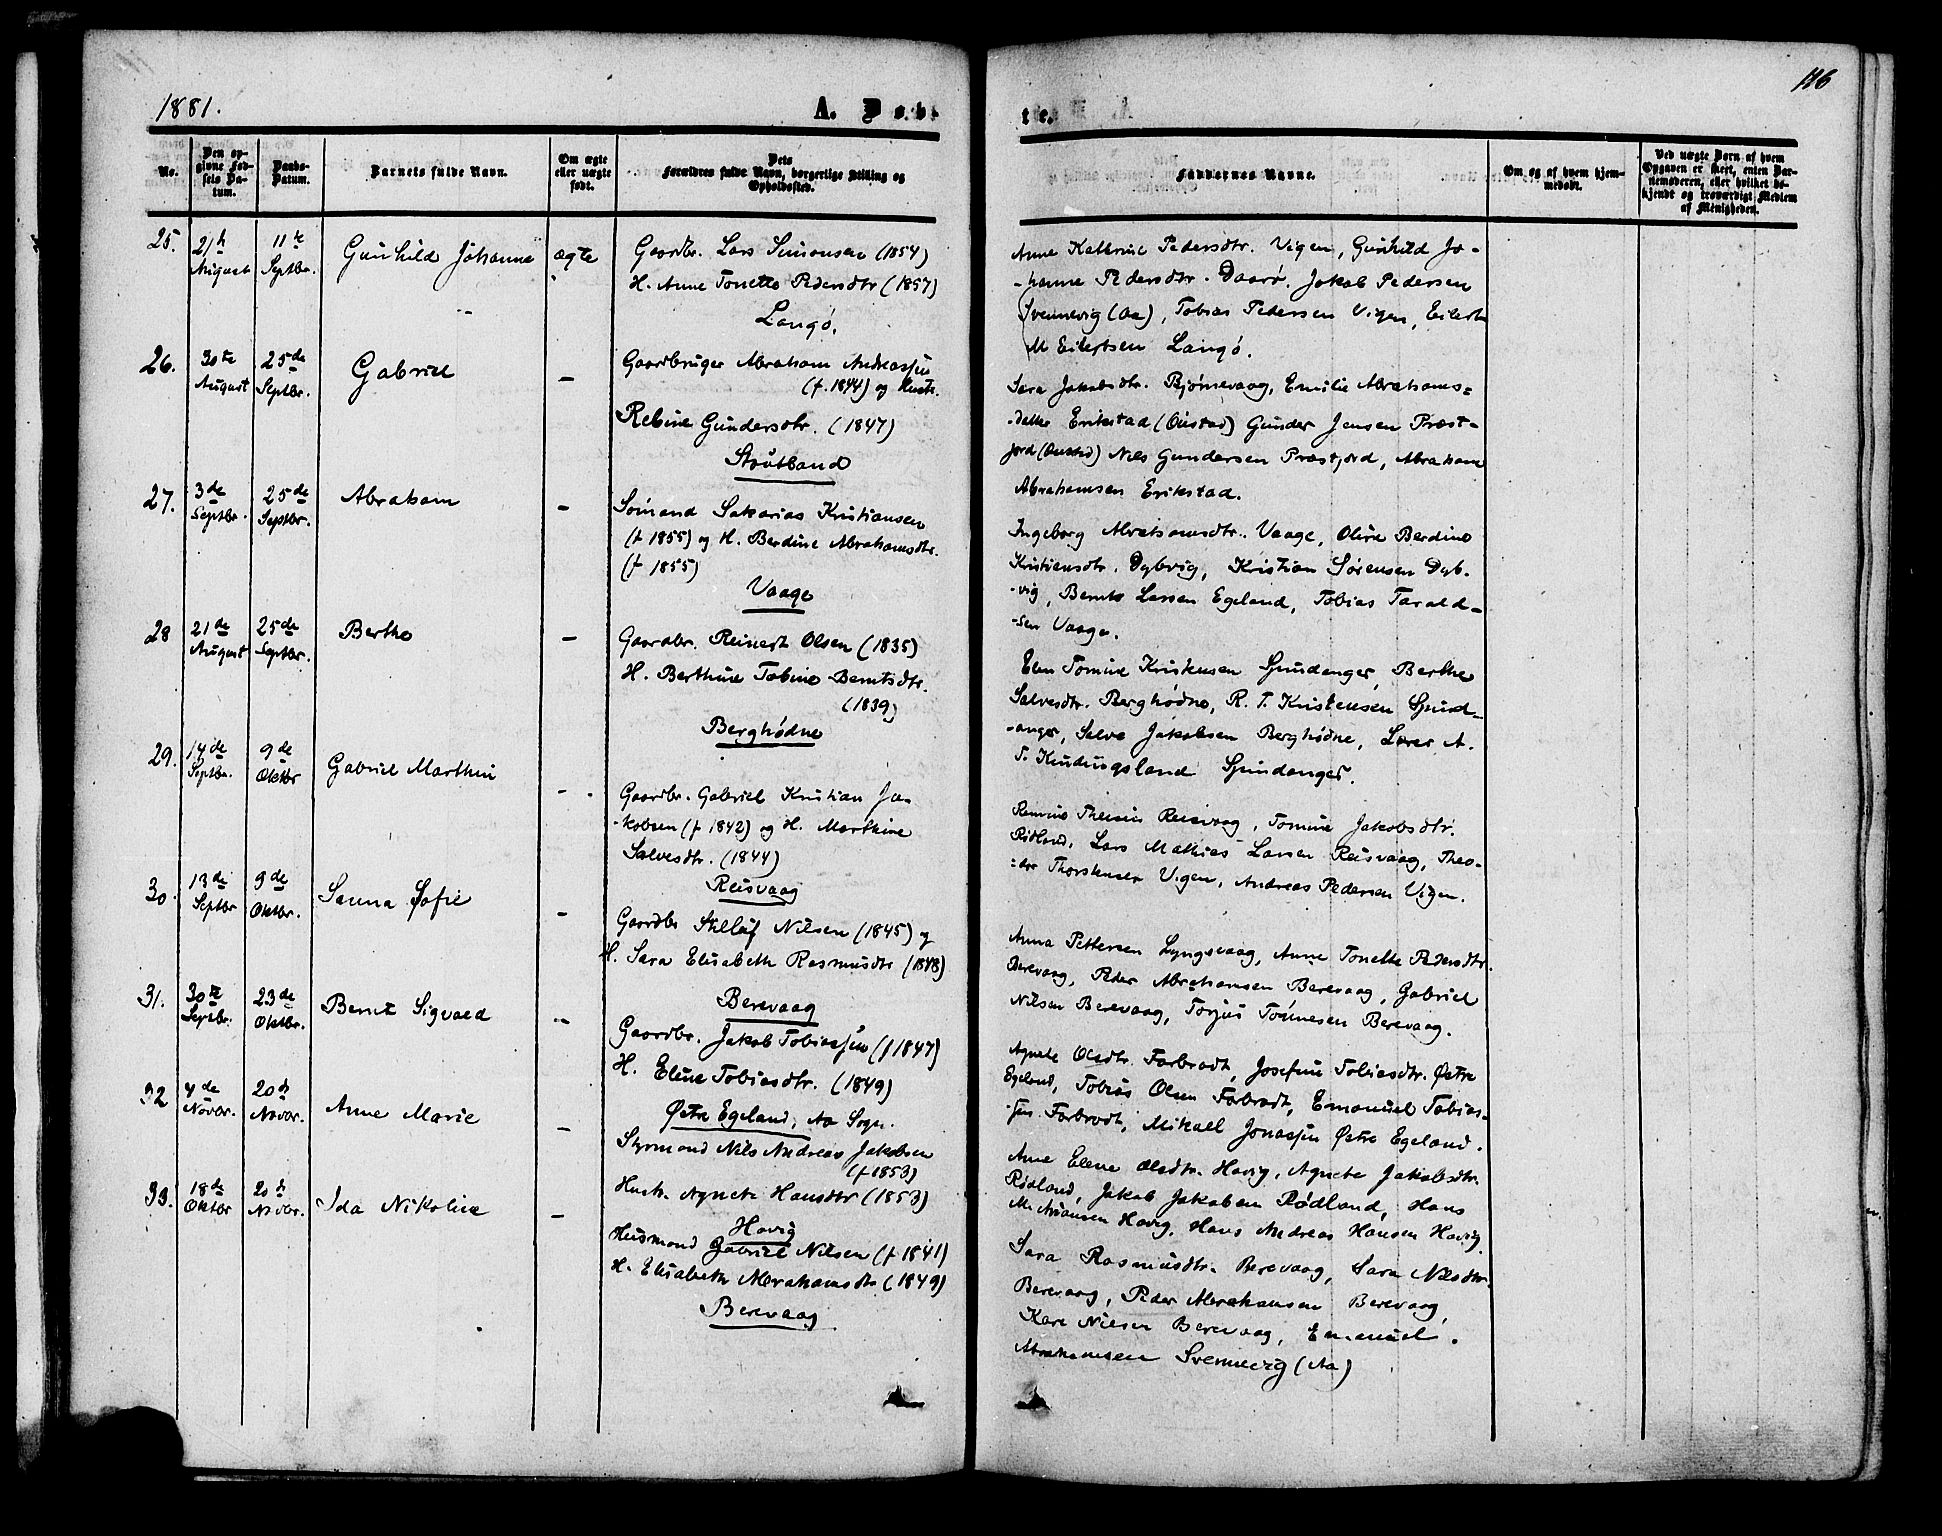 1881.
A. Døb-
te.
116
No.
Den op-
givne Fød-
sels Da-
tum.
Daabs-
Datum.
Barnets fulde Navn.
Om ægte
eller uægte
født.
Dets
Forældres fulde Navn, borgerlige Stilling og
Opholdssted.
Faddernes Navne.
Om og af hvem hjem-
medøbt.
Ved uægte Børn af hvem
Opgaven er skeet, enten Bar-
nemoderen, eller hvilket be-
kjendt og troværdigt Medlem
af Menigheden.
25.
21de
August
11te
Septbr.
Gunhild Johanne
ægte
Gaardbr. Lars Simonsen (1854)
H. Anne Tonette Pedersdtr (1857)
Langø.
Anne Kathrine Pedersdtr. Vigen, Gunhild Jo-
-hanne Pedersdtr. Daarø. Jakob Pedersen
Svennevig (Aa), Tobias Pedersen Vigen, Eilert
M Eilertsen Langø.
26.
30te
August
25de
Septbr.
Gabriel
–
Gaardbruger Abraham Andreassen
(f. 1844) og Hustr.
Rebine Gundersdtr. (1847)
Stoutland
Sara Jakobsdtr. Bjørnevaag, Emilie Abrahams-
-datter Erikstad (Oustad) Gunder Jensen Præst-
jord (Oustad) Nils Gundersen Præstjord, Abraham
Abrahamsen Erikstad.
27.
3de
Septbr.
25de
Septbr.
Abraham
–
Sømand Sakarias Kristiansen
(f 1855) og H. Berdine Abrahamsdtr.
(f 1855)
Vaage
Ingeborg Abrahamsdtr. Vaage, Oline Berdine
Kristiansdtr. Dybvig, Kristian Sørensen Dyb-
-vig, Bernt Larsen Egeland, Tobias Tarald-
-sen Vaage.
28
21de
August
25de
Septbr.
Berthe
–
Gaardbr. Reinert Olsen (1835)
H. Berthine Tobine Berntsdtr.
(1839)
Berghødne
Elen Tomine Kristensen Spindanger, Berthe
Salvesdtr. Berghødne, R. T. Kristensen Spind-
-anger, Salve Jakobsen Berghødne, Lærer A.
T. Spindanger.
29.
14de
Septbr.
9de
Oktbr
Gabriel Marthin
–
Gaardbr. Gabriel Kristian Ja-
-kobsen (f 1842) og H. Marthine
Salvesdtr. (1844)
Reisvaag
Reisvaag, Tomine Jakobsdtr.
Rødland, Lars Mathias Larsen Reisvaag, Theo-
-dor Thorstensen Vigen, Andreas Pedersen Vigen.
30.
13de
Septbr
9de
Oktbr.
Sanna Sofie
–
Gaardbr Stilluf Nilsen (1845) og
H. Sara Elisabeth Rasmusdtr (1848)
Berevaag
Anna Pettersen Lyngsvaag, Anne Tonette Pedersdtr.
Berevaag, Peder Abrahamsen Berevaag, Gabriel
Nilsen Berevaag, Torjus Tønnesen Berevaag.
31.
30te
Septbr.
23de
Oktbr.
Bernt Sigvald
–
Gaardbr. Jakob Tobiassen (f 1847)
H. Eline Tobiasdtr. (1849)
Østre Egeland, Aa Sogn.
Agnete Olsdtr. Farbrodt, Josefine Tobiasdtr. Østre
Egeland, Tobias Olsen Farbrodt, Emanuel Tobias-
-sen Farbrodt, Mikael Jonassen Østre Egeland.
32
4de
Novbr.
20de
Novbr.
Anne Marie
–
Styrmand Nils Andreas Jakobsen
(f 1853)
Hustr. Agnete Hansdtr (1853)
Havig
Anne Elene Olsdtr. Havig, Agnete Jakobsdtr.
Rødland, Jakob Jakobsen Rødland, Hans
M. Havig, Hans Andreas Hansen Havig.
33.
18de
Oktbr
20de
Novbr.
Ida Nikoline
–
Husmand Gabriel Nilsen (f 1841)
H. Elisabeth Abrahamsdtr (1849)
Berevaag
Sara Rasmusdtr. Berevaag, Sara Nilsdtr.
Berevaag, Peder Abrahamsen Berevaag,
Kare Nilsen Berevaag, Emanuel
Abrahamsen Svennevig (Aa)